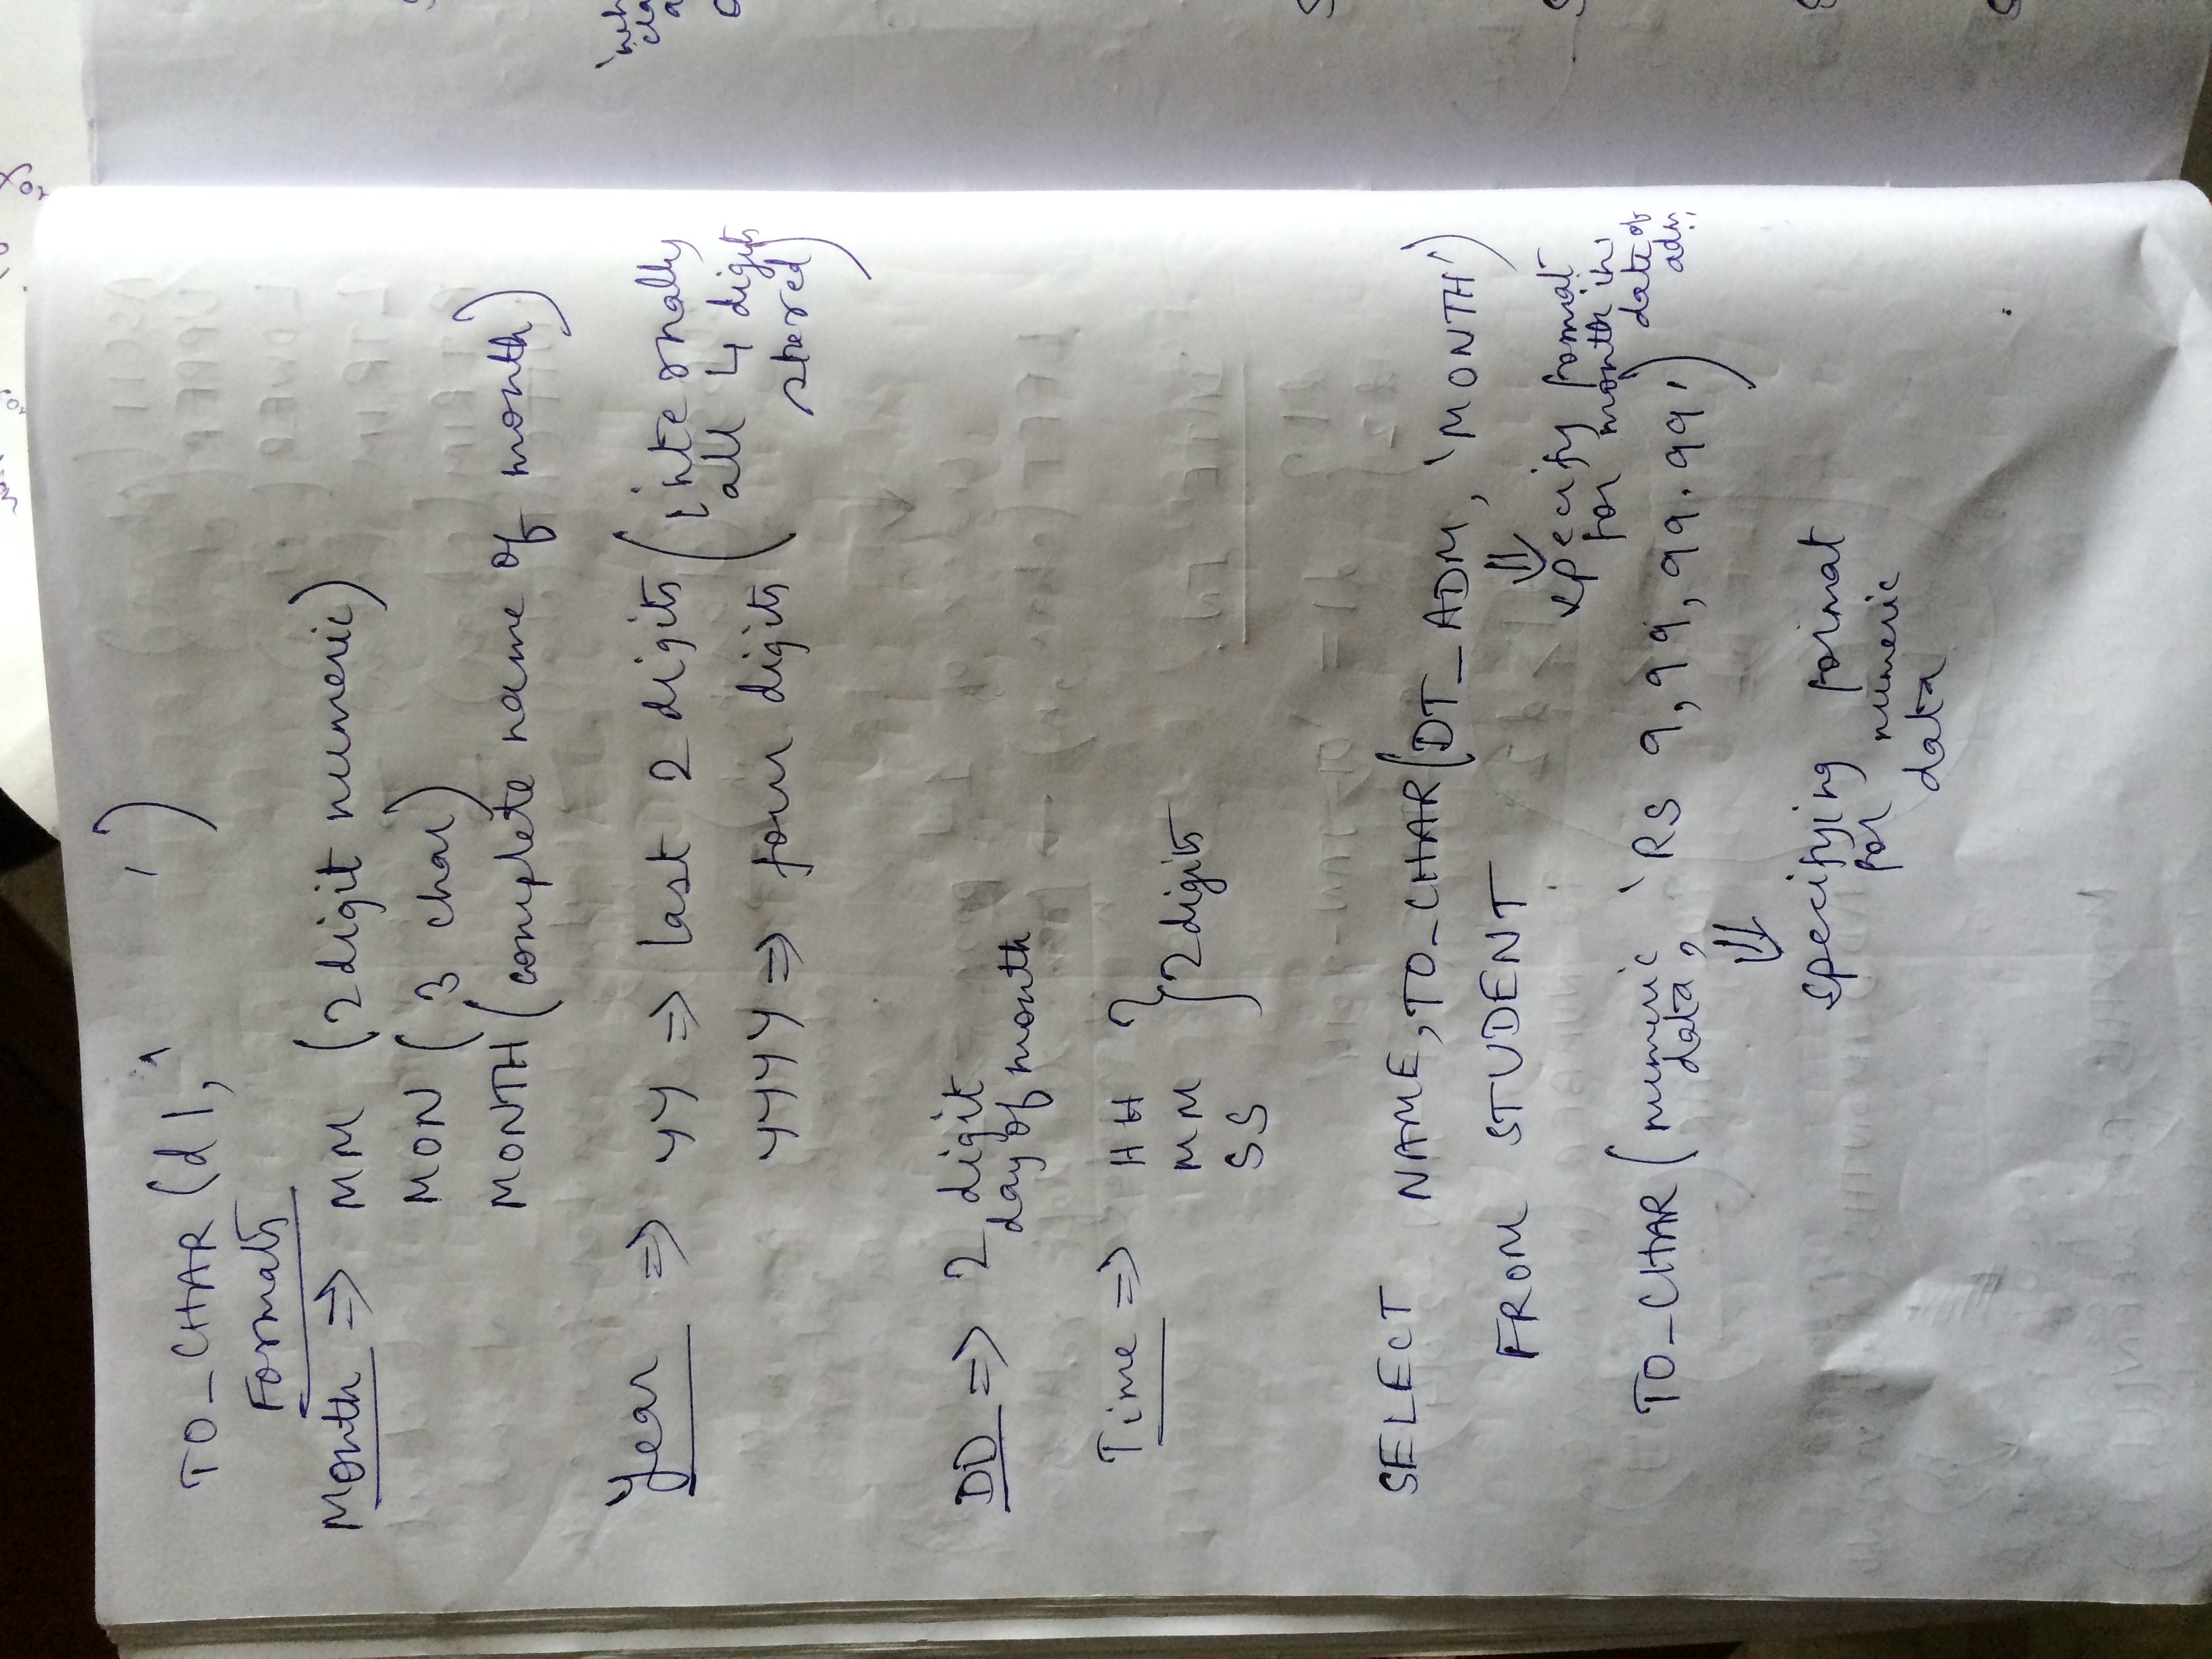 TO_CHAR (d1, '        ')
Formats
Month ⇒ MM (2 digit numeric)
MON (3 char)
MONTH (complete name of month)
Year ⇒ YY ⇒ last 2 digits (internally
all 4 digits
YYYY ⇒ four digits
stored)
DD ⇒ 2 digit
day of month
Time ⇒ HH
MM } 2 digits
SS
SELECT NAME, TO_CHAR (DT_ADM, 'MONTH')
FROM STUDENT
⇓
specify format
for month in
date of
adm
TO_CHAR (numeric
data, 'RS 9,99,99.99')
⇓
specifying format
for numeric
data